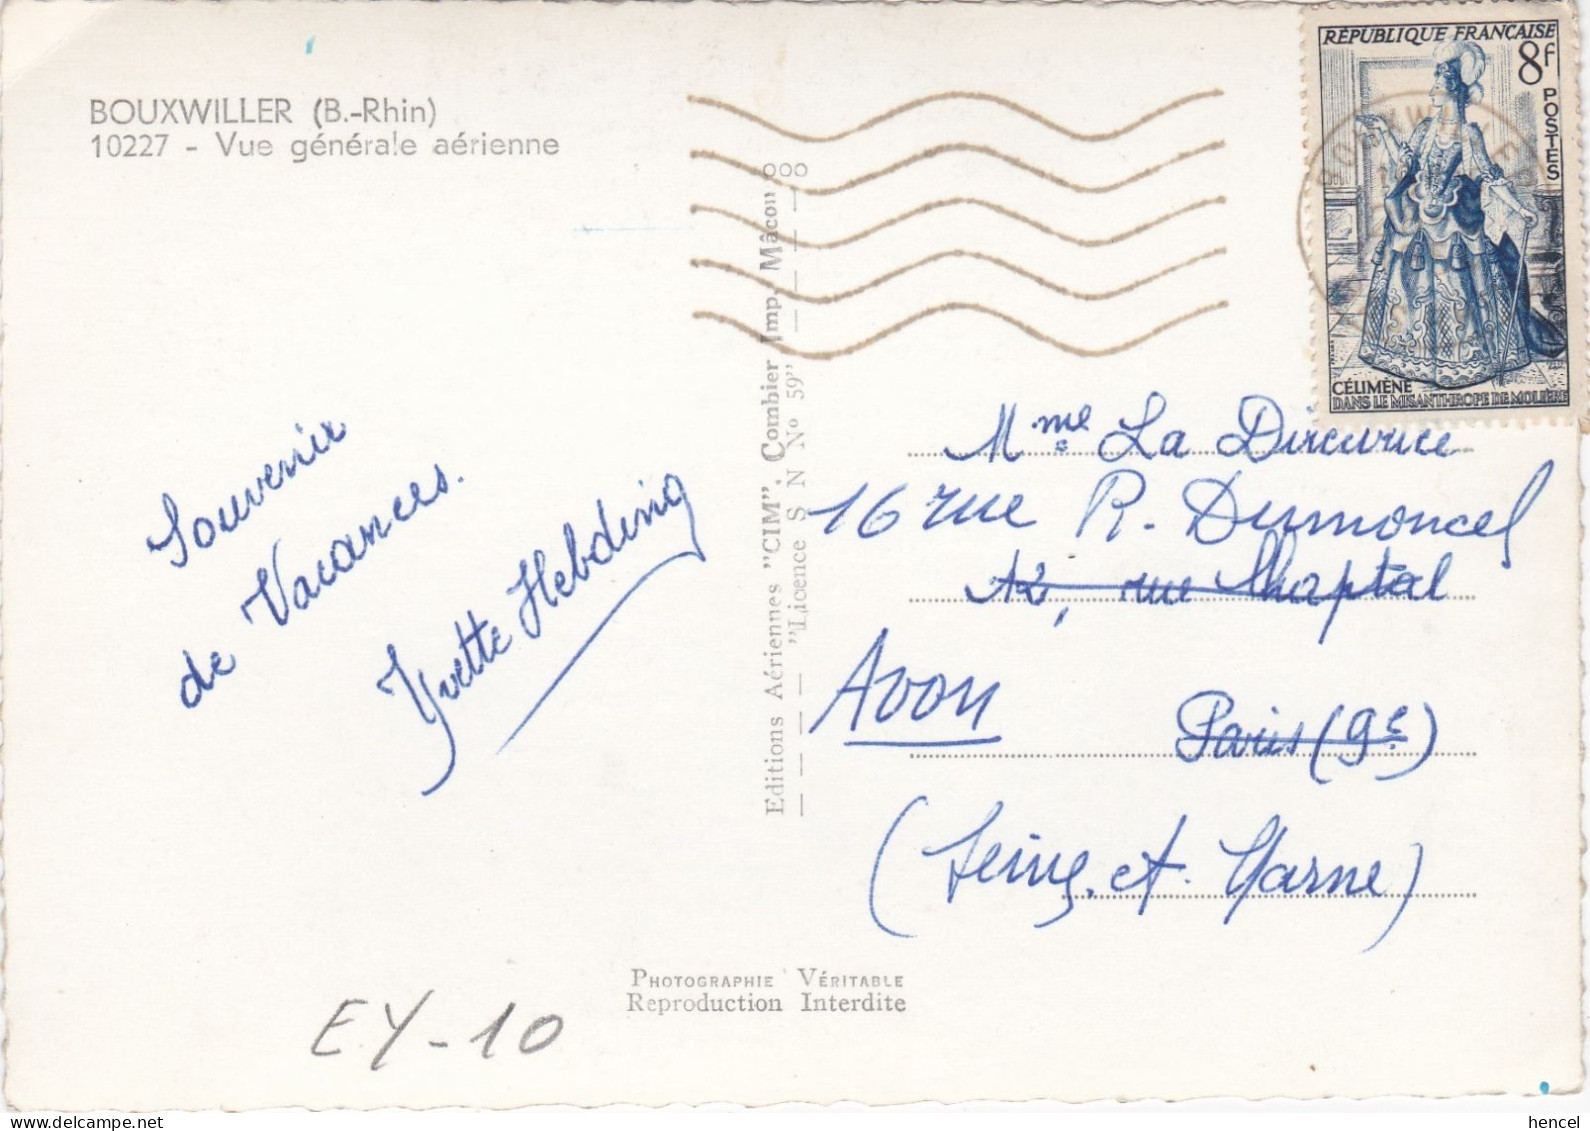 BOUXWILLER (B.-Rhin)
10227 - Vue générale aérienne
Souvenir
de Vacances.
Yvette Hebding
EY-10
Editions Aériennes "CIM", Combier Imp. Mâcon
"Licence S N No 59"
PHOTOGRAPHIE VÉRITABLE
Reproduction Interdite
RÉPUBLIQUE FRANÇAISE
8f
POSTES
CÉLIMÈNE
DANS LE MISANTHROPE DE MOLIÈRE
Mme La Directrice
16 rue R. Dumoncel
12, rue Chaptal
Avon
Paris (9e)
(Seine et Marne)
delcampe.net
hencel